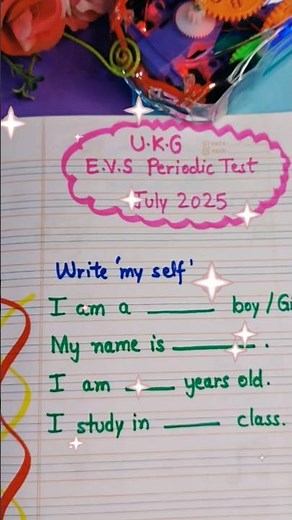 U.K.G
E.V.S Periodic Test
July 2025
Write 'my self'
I am a ______ boy / Gi
My name is ________ .
I am ____ years old.
I study in _____ class.